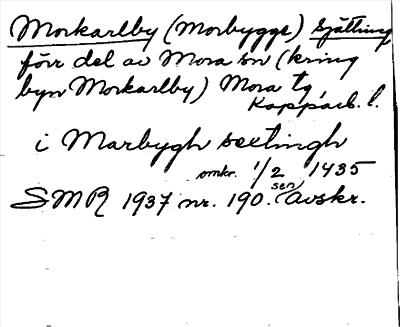 Morkarlby (Morbygge) sjätting,
förr del av Mora sn (kring
byn Morkarlby) Mora tg,
Kopparb. l.
i Marbygh sextingh
omkr. 1/2 1435
SMR 1937 nr. 190. sen avskr.